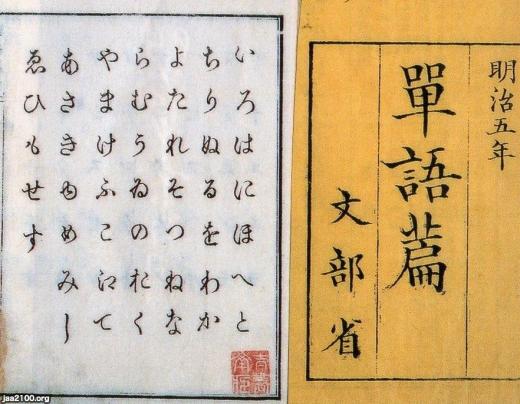 明治五年
單語篇
文部省
いろはにほへと
ちりぬるをわか
よたれそつねな
らむうゐのおく
やまけふこえて
あさきゆめみし
ゑひもせす
jaa2100.org